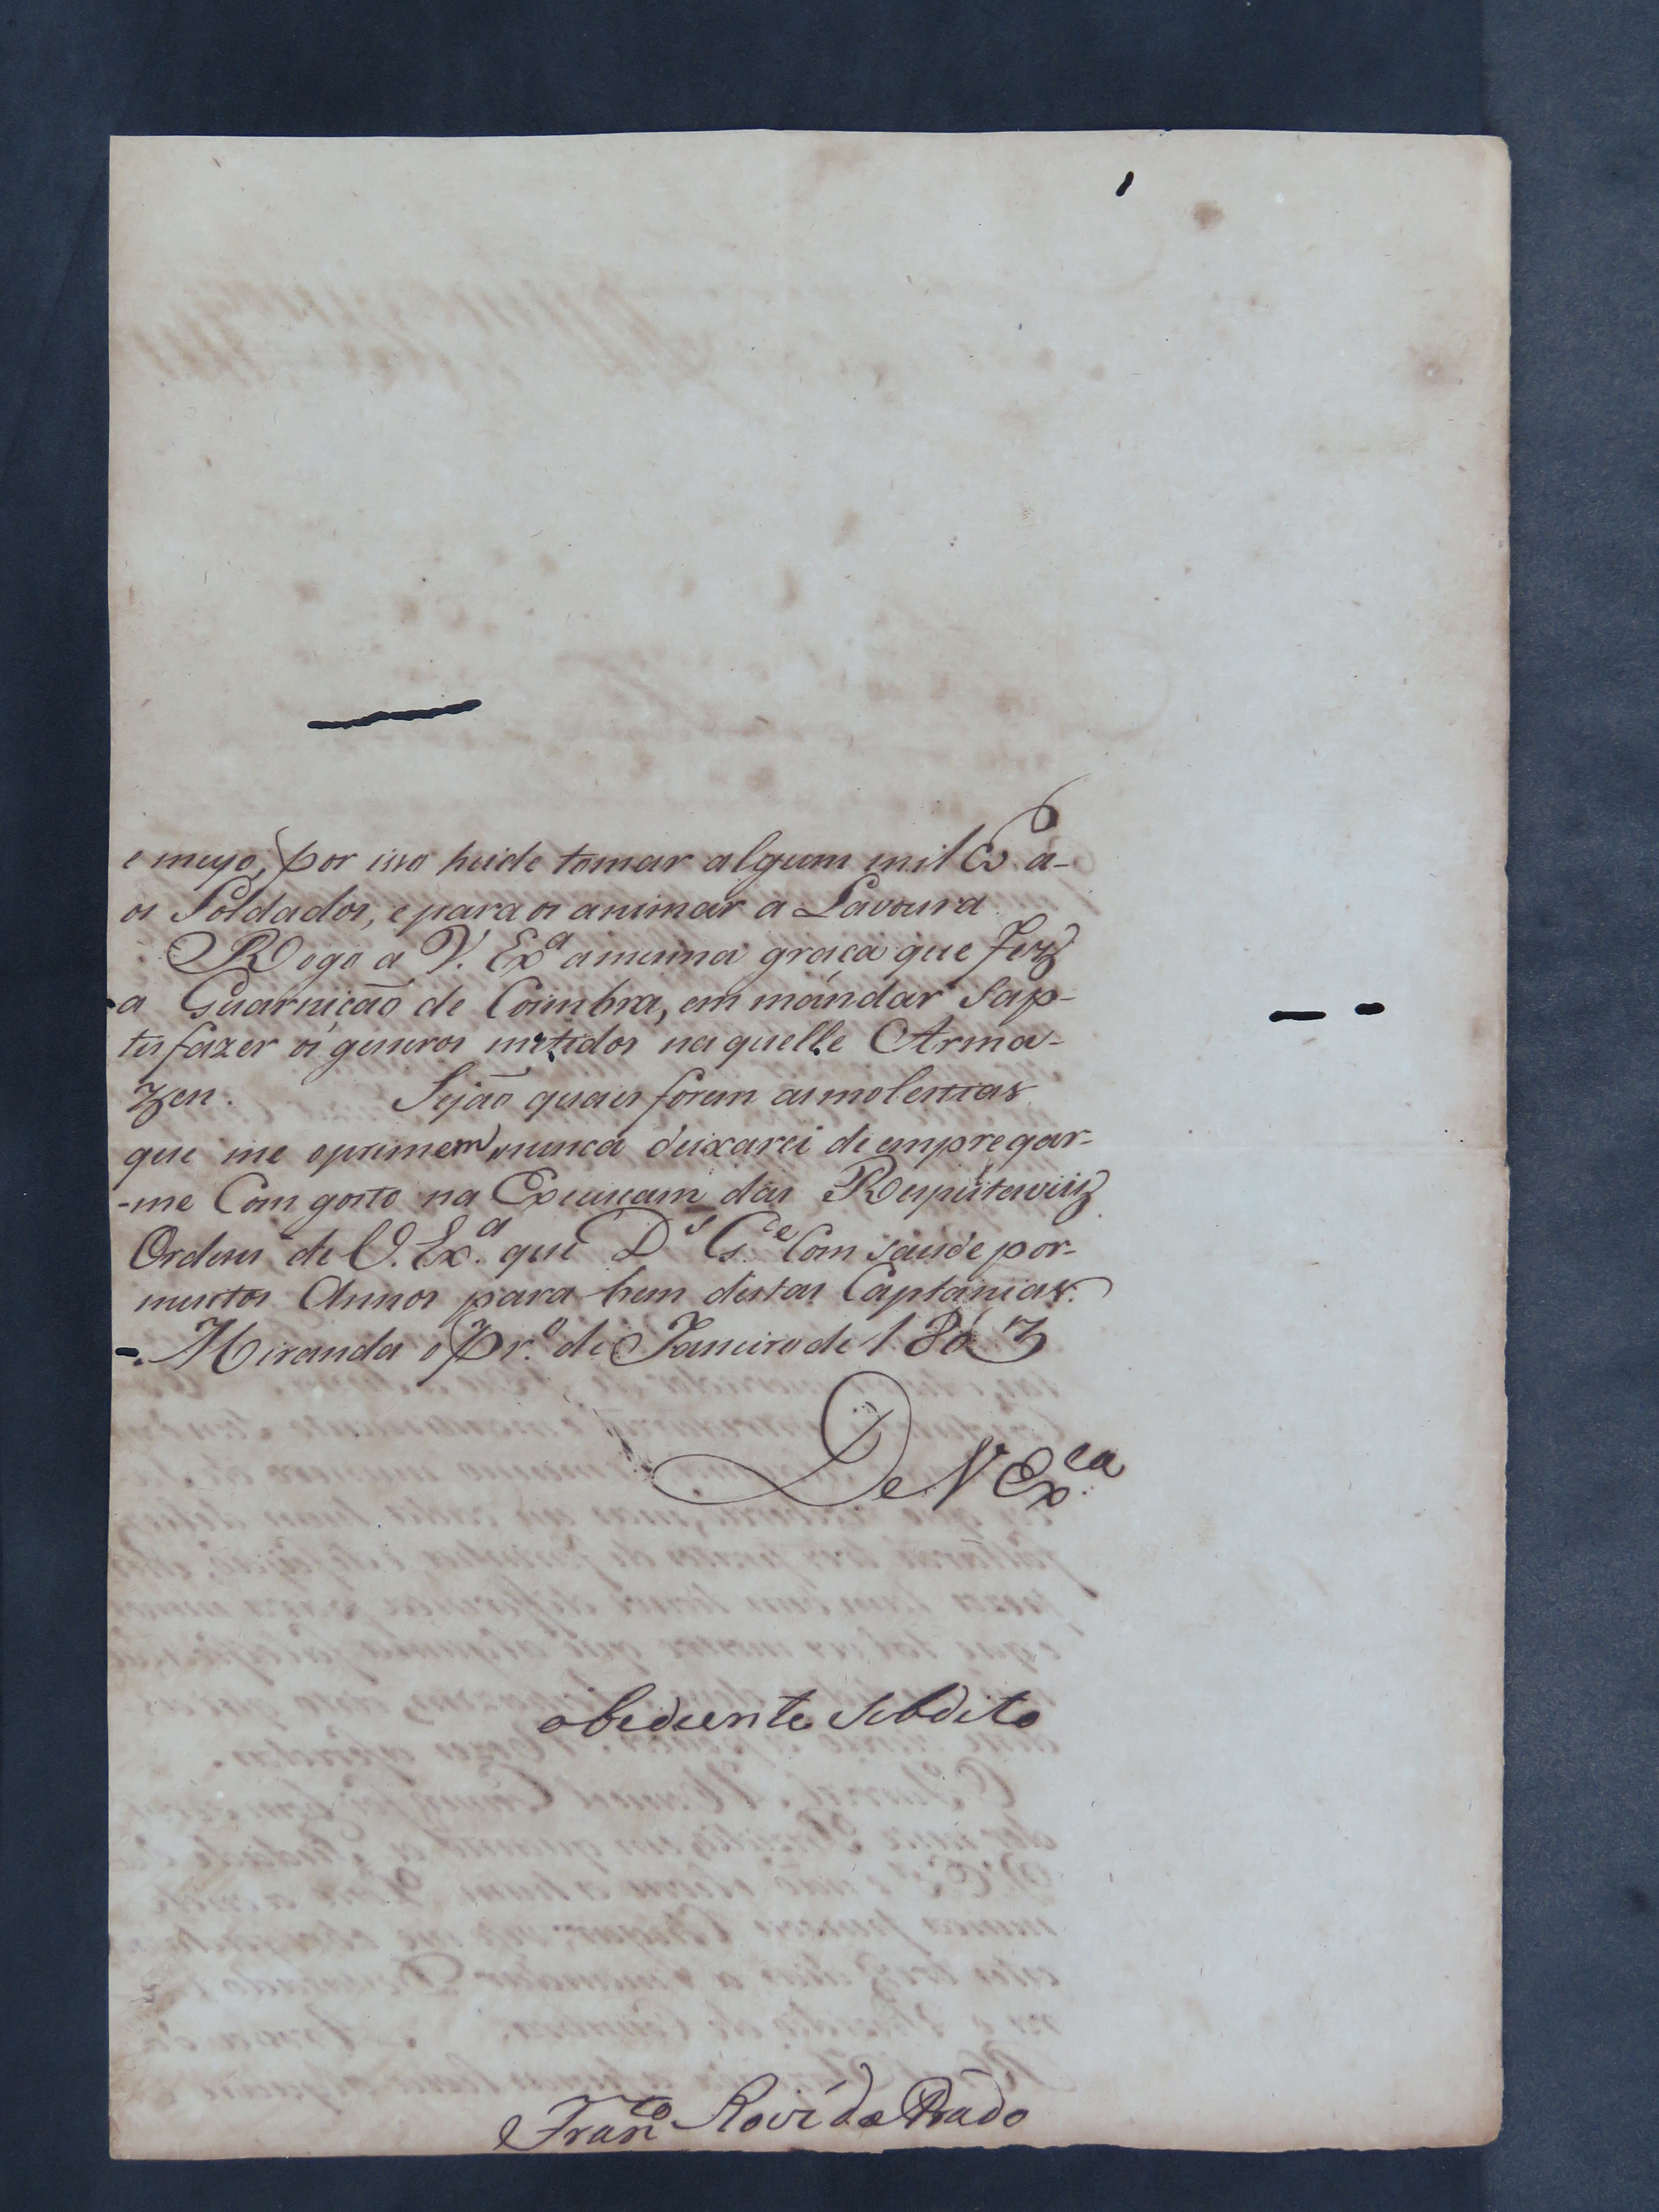 e meyo, por isso heide tomar algum milho a-
os Soldados, e para os animar a Lavoura.
Rogo a V. Exª a mesma graça que fez
a Guarnição de Coimbra, em mandar sap-
tesfazer os generos metidos naquelle Arma-
zen. Sejão quais forem as molestias
que me oprimem, nunca deixarei de empregar-
-me Com gosto na Execucam das Respeitaveiz
Ordens de V. Exª. que Dˢ Gᵉ Com saude por-
muitos Annos para bem destas Captanias.
Miranda o Prº. de Janeiro de 1803
De V Exᶜᵃ.
obediente Subdito
Franᶜᵒ Roiz do Prado